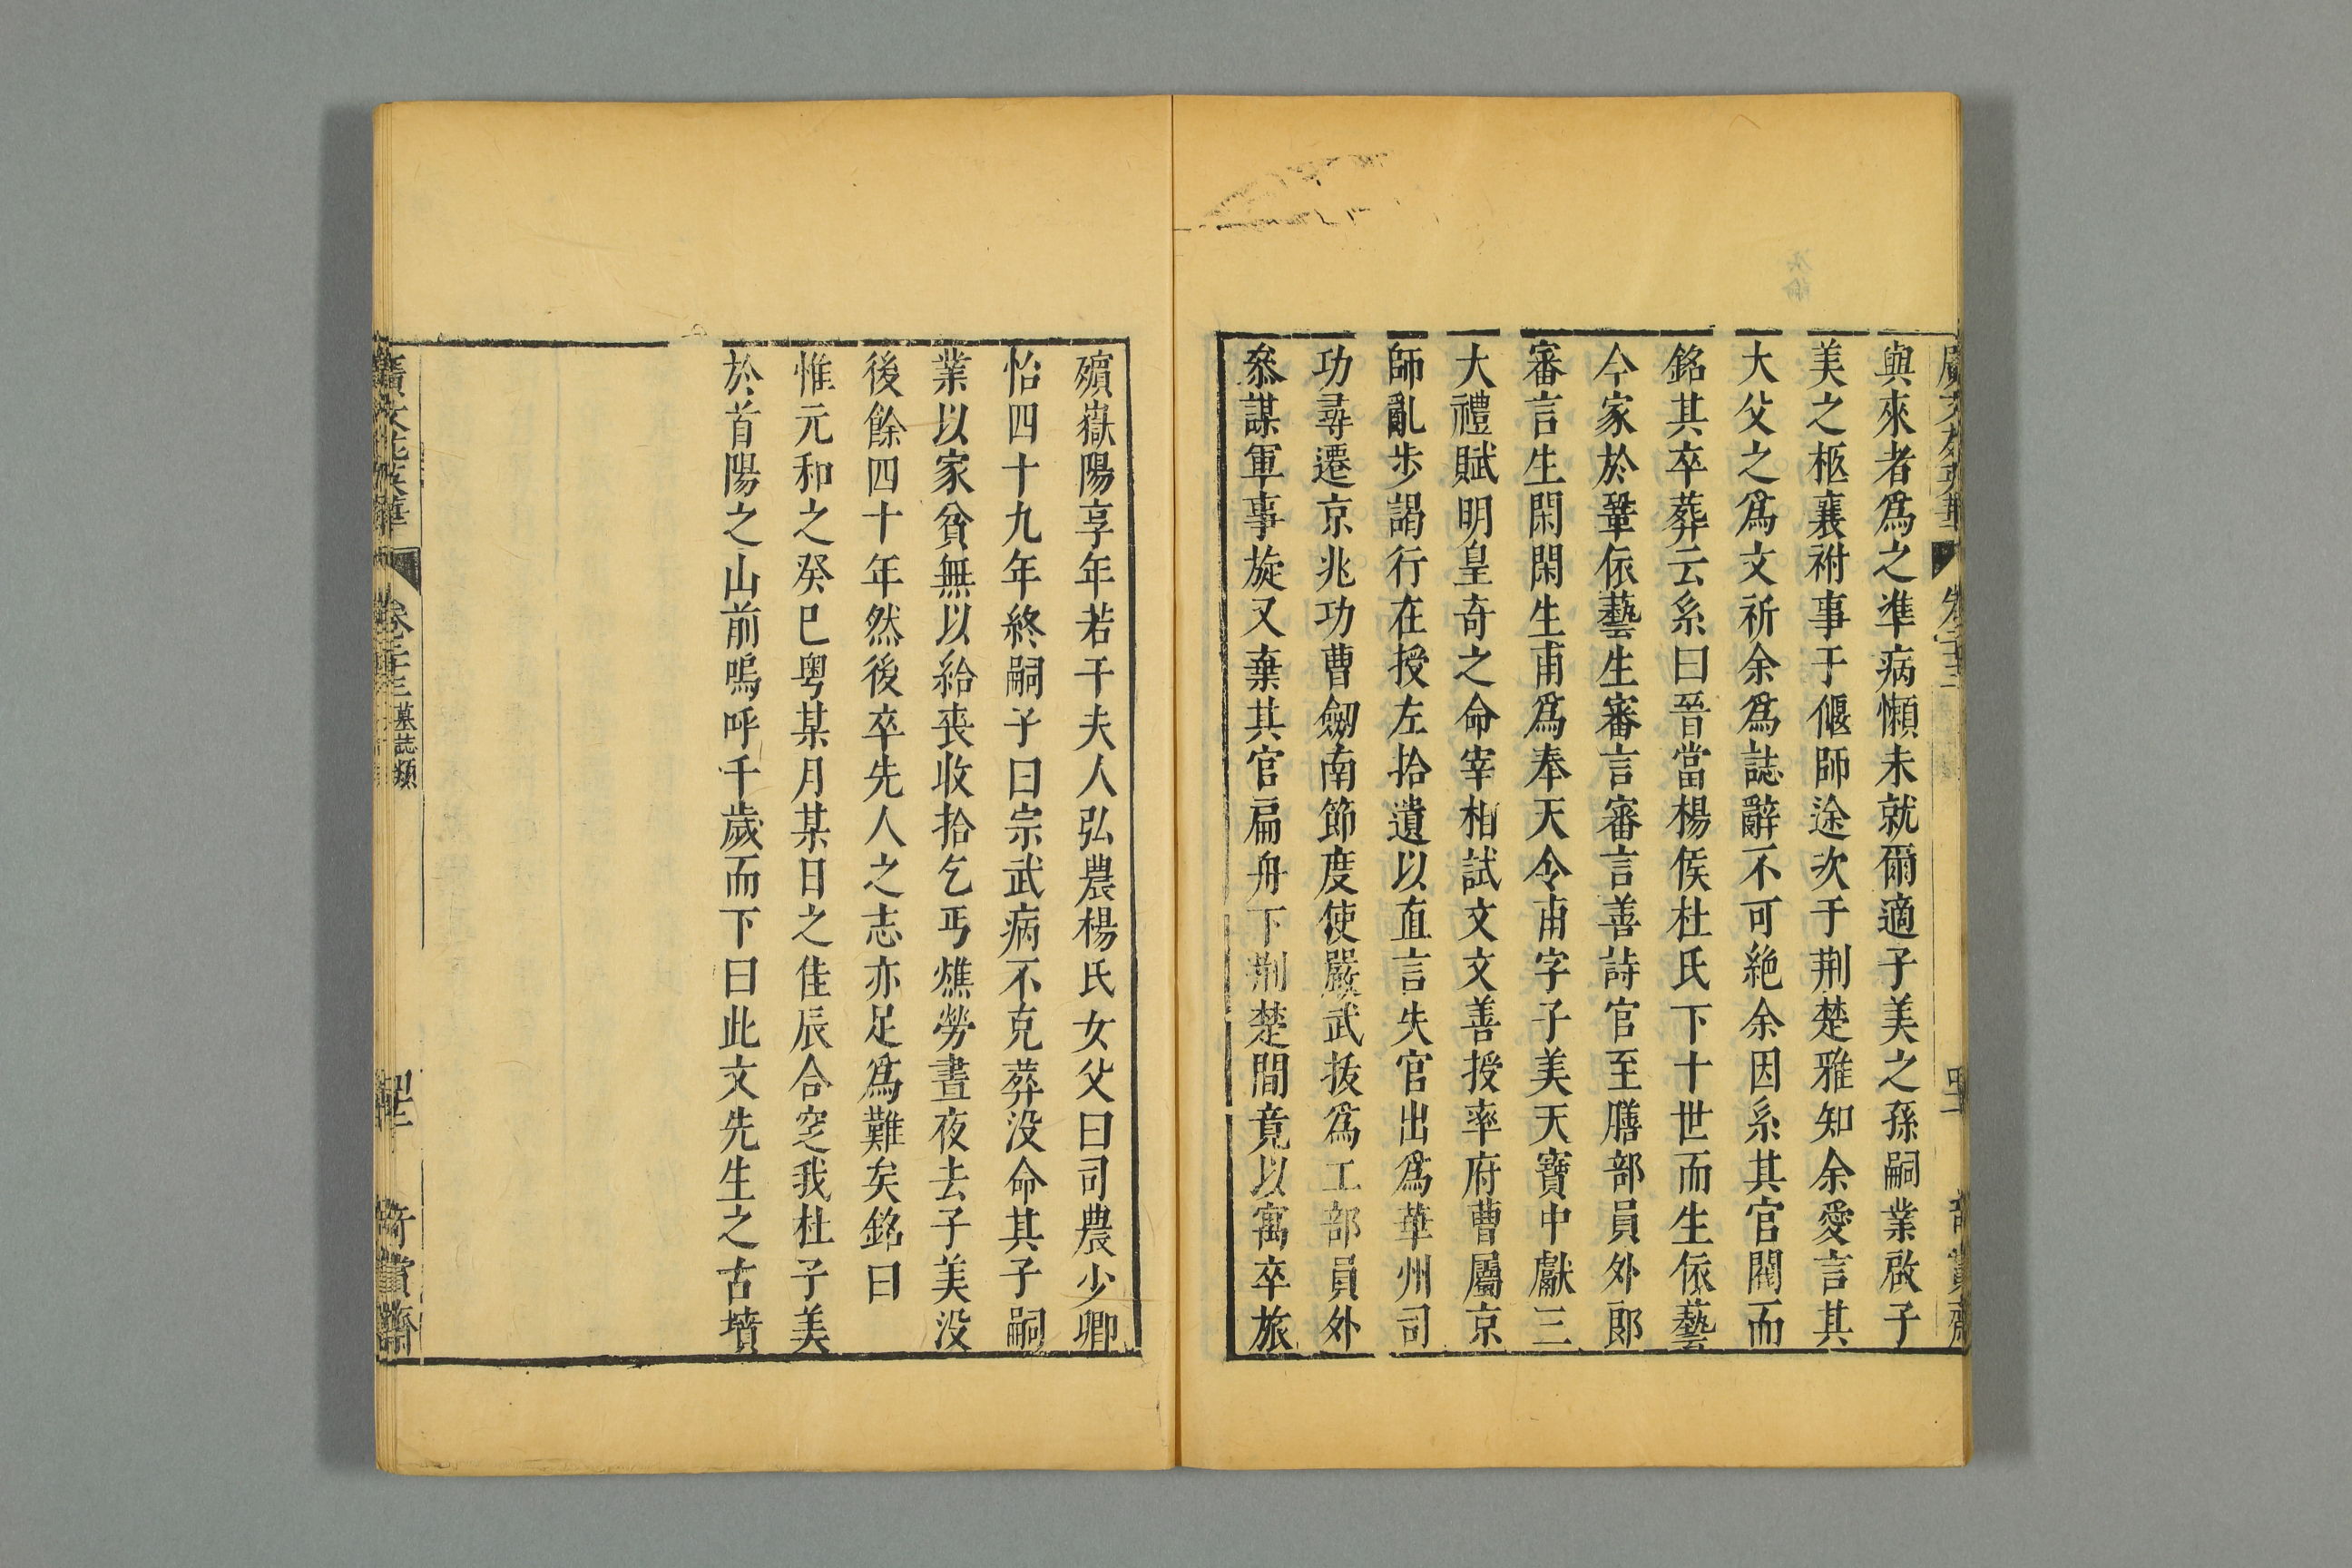 與來者爲之凖病懶未就爾適子美之孫嗣業啟子
美之柩襄祔事于偃師途次于荆楚雅知余愛言其
大父之爲文祈余爲誌辭不可絶余因系其官閥而
銘其卒葬云系曰晉當楊侯杜氏下十世而生依藝
今家於鞏依藝生審言審言善詩官至膳部員外郎
審言生閑閑生甫爲奉天令甫字子美天寶中獻三
大禮賦明皇奇之命宰相試文文善授率府曹屬京
師亂步謁行在授左拾遺以直言失官出爲華州司
功尋遷京兆功曹劒南節度使嚴武拔爲工部員外
叅謀軍事旋又棄其官扁舟下荆楚間竟以寓卒旅
殯嶽陽享年若干夫人弘農楊氏女父曰司農少卿
怡四十九年終嗣子曰宗武病不克葬没命其子嗣
業以家貧無以給丧收拾乞丐燋勞晝夜去子美没
後餘四十年然後卒先人之志亦足爲難矣銘曰
惟元和之癸巳粤某月某日之佳辰合窆我杜子美
於首陽之山前嗚呼千歲而下曰此文先生之古墳
廣文苑英華 卷二十三 墓誌類 奇賞齋